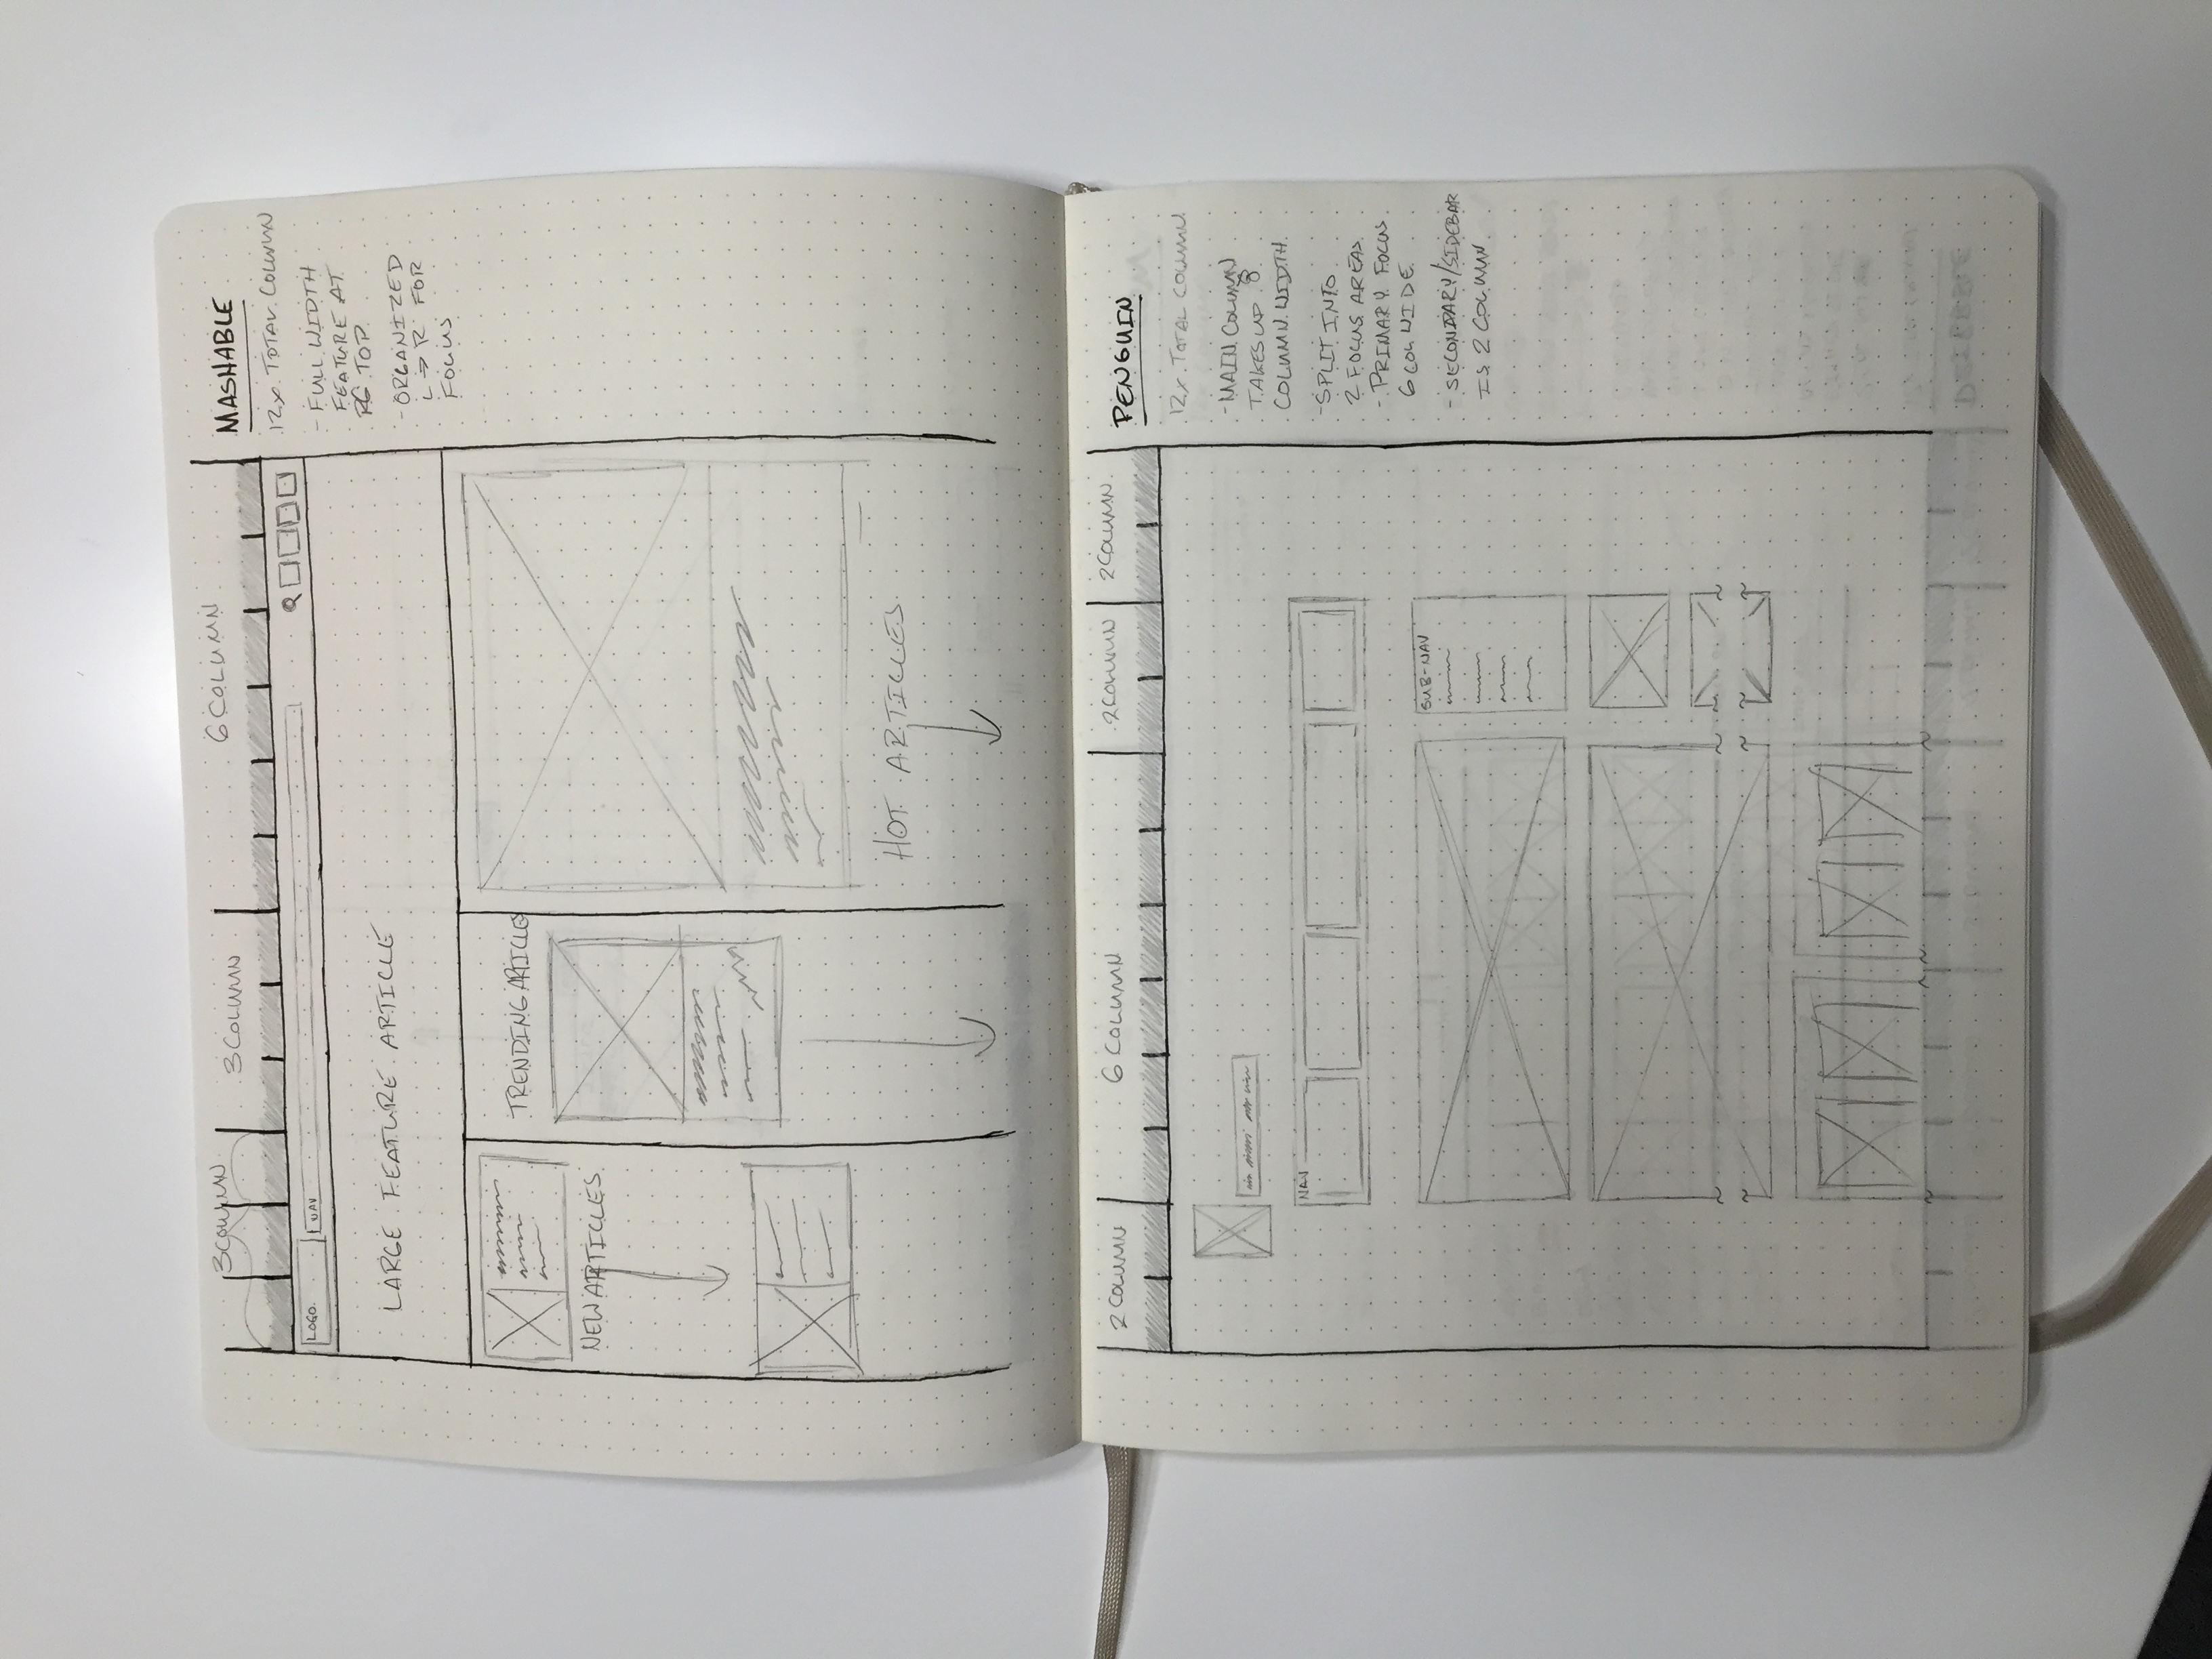 3 COLUMN
3 COLUMN
6 COLUMN
LOGO
NAV
LARGE FEATURE ARTICLE
NEW ARTICLES
TRENDING ARTICLES
HOT ARTICLES
MASHABLE
12x TOTAL COLUMN
- FULL WIDTH
FEATURE AT
PG TOP
- ORGANIZED
L → R FOR
FOCUS
2 COLUMN
6 COLUMN
2 COLUMN
2 COLUMN
NAV
SUB-NAV
PENGUIN
12x TOTAL COLUMN
- MAIN COLUMN
TAKES UP 8
COLUMN WIDTH
- SPLIT INTO
2 FOCUS AREAS
- PRIMARY FOCUS
6 COL WIDE
- SECONDARY/SIDEBAR
IS 2 COLUMN